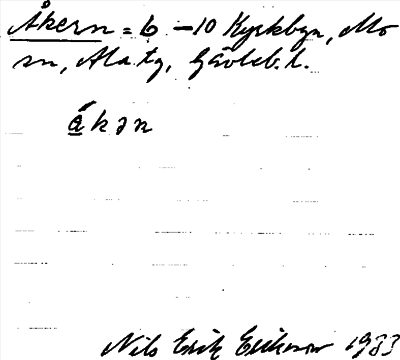 Åkern = 6 - 10 Kyrkbyn, Mo
sn, Ala tg, Gävleb. l.
ákən
Nils Erik Erikson 1933